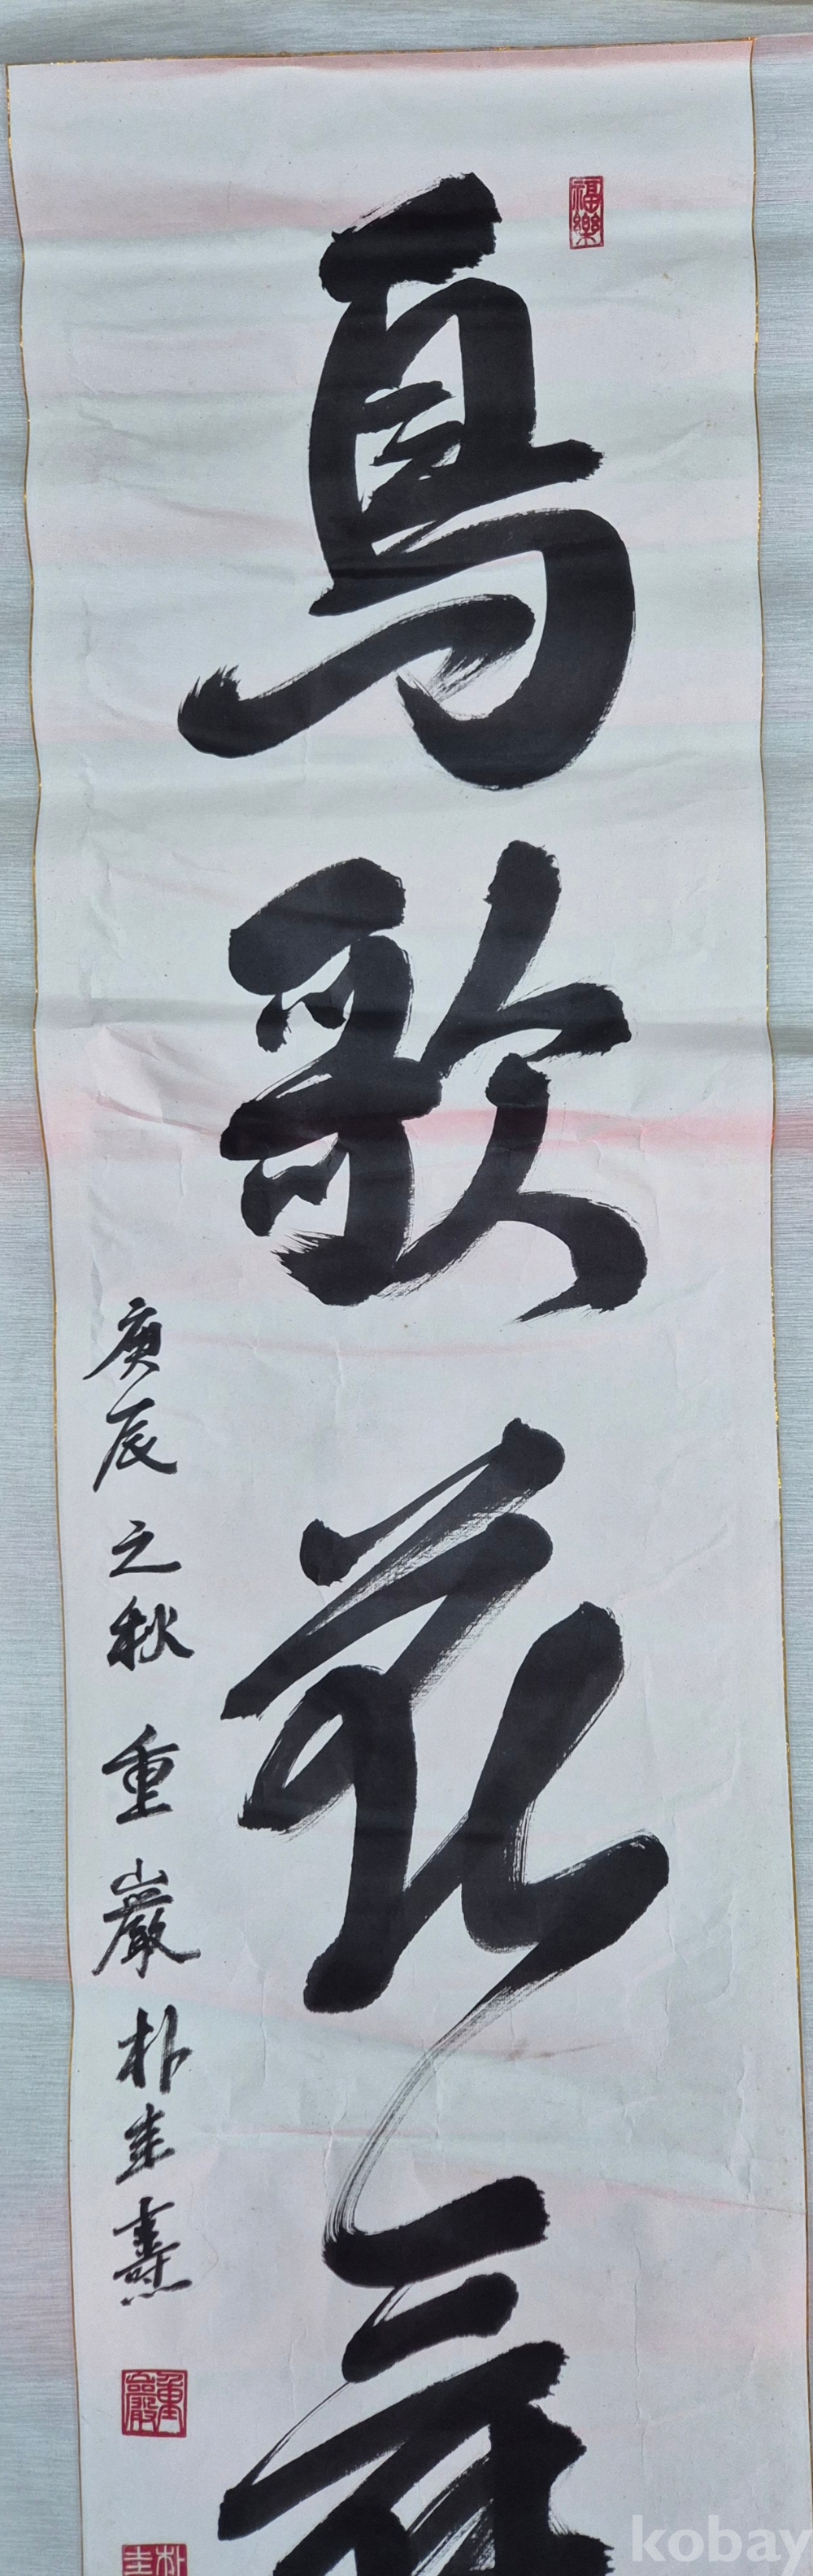 福樂
鳥歌花舞
庚辰之秋 重巖 朴圭燾
重巖
朴圭
kobay